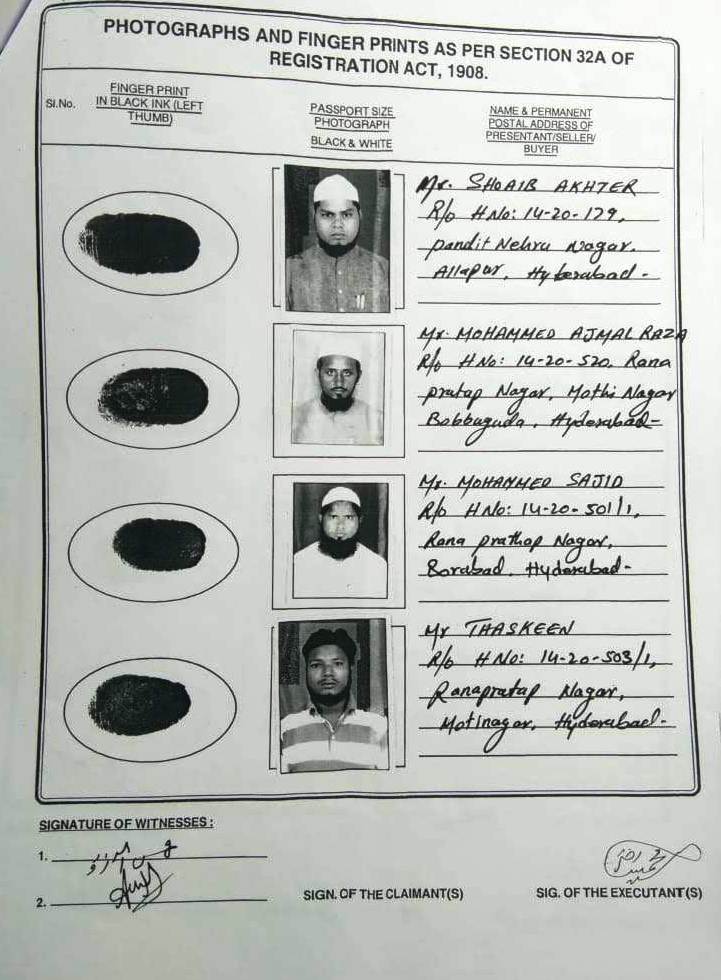 PHOTOGRAPHS AND FINGER PRINTS AS PER SECTION 32A OF
REGISTRATION ACT, 1908.
Sl.No.
FINGER PRINT
IN BLACK INK (LEFT
THUMB)
PASSPORT SIZE
PHOTOGRAPH
BLACK & WHITE
NAME & PERMANENT
POSTAL ADDRESS OF
PRESENTANT/SELLER/
BUYER
Mr. SHOAIB AKHTER
R/o H No: 14-20-179,
pandit Nehru Nagar.
Allapur, Hyderabad -
Mr. MOHAMMED AJMAL RAZA
R/o H No: 14-20-520, Rana
pratap Nagar, Mothi Nagar
Bobbuguda, Hyderabad-
Mr. MOHAMMED SAJID
R/o H No: 14-20-501/1,
Rana prathap Nagar,
Borabad, Hyderabad-
Mr THASKEEN
R/o H No: 14-20-503/1,
Ranapratap Nagar,
Motinagar, Hyderabad-
SIGNATURE OF WITNESSES :
1.
2.
SIGN. OF THE CLAIMANT(S)
SIG. OF THE EXECUTANT(S)